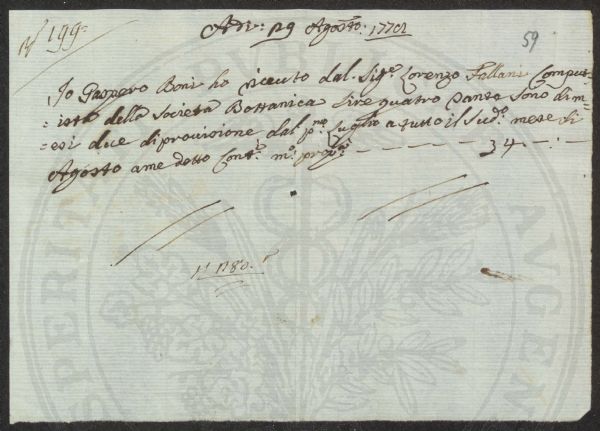 N° 199:
Adi: 29 Agosto: 1770
59
Io Gaspero Boni ho riceuto dal Sig.e Lorenzo Fallani Comput=
=ista della Societa Bottanica Lire quatro tanto sono di m=
=esi due di provisione dal p.mo Luglio a tutto il Sud.o mese di
Agosto a me detto Cont.i m.o prop.a — — — — — 34 — . —
SPERITA
AVGEN